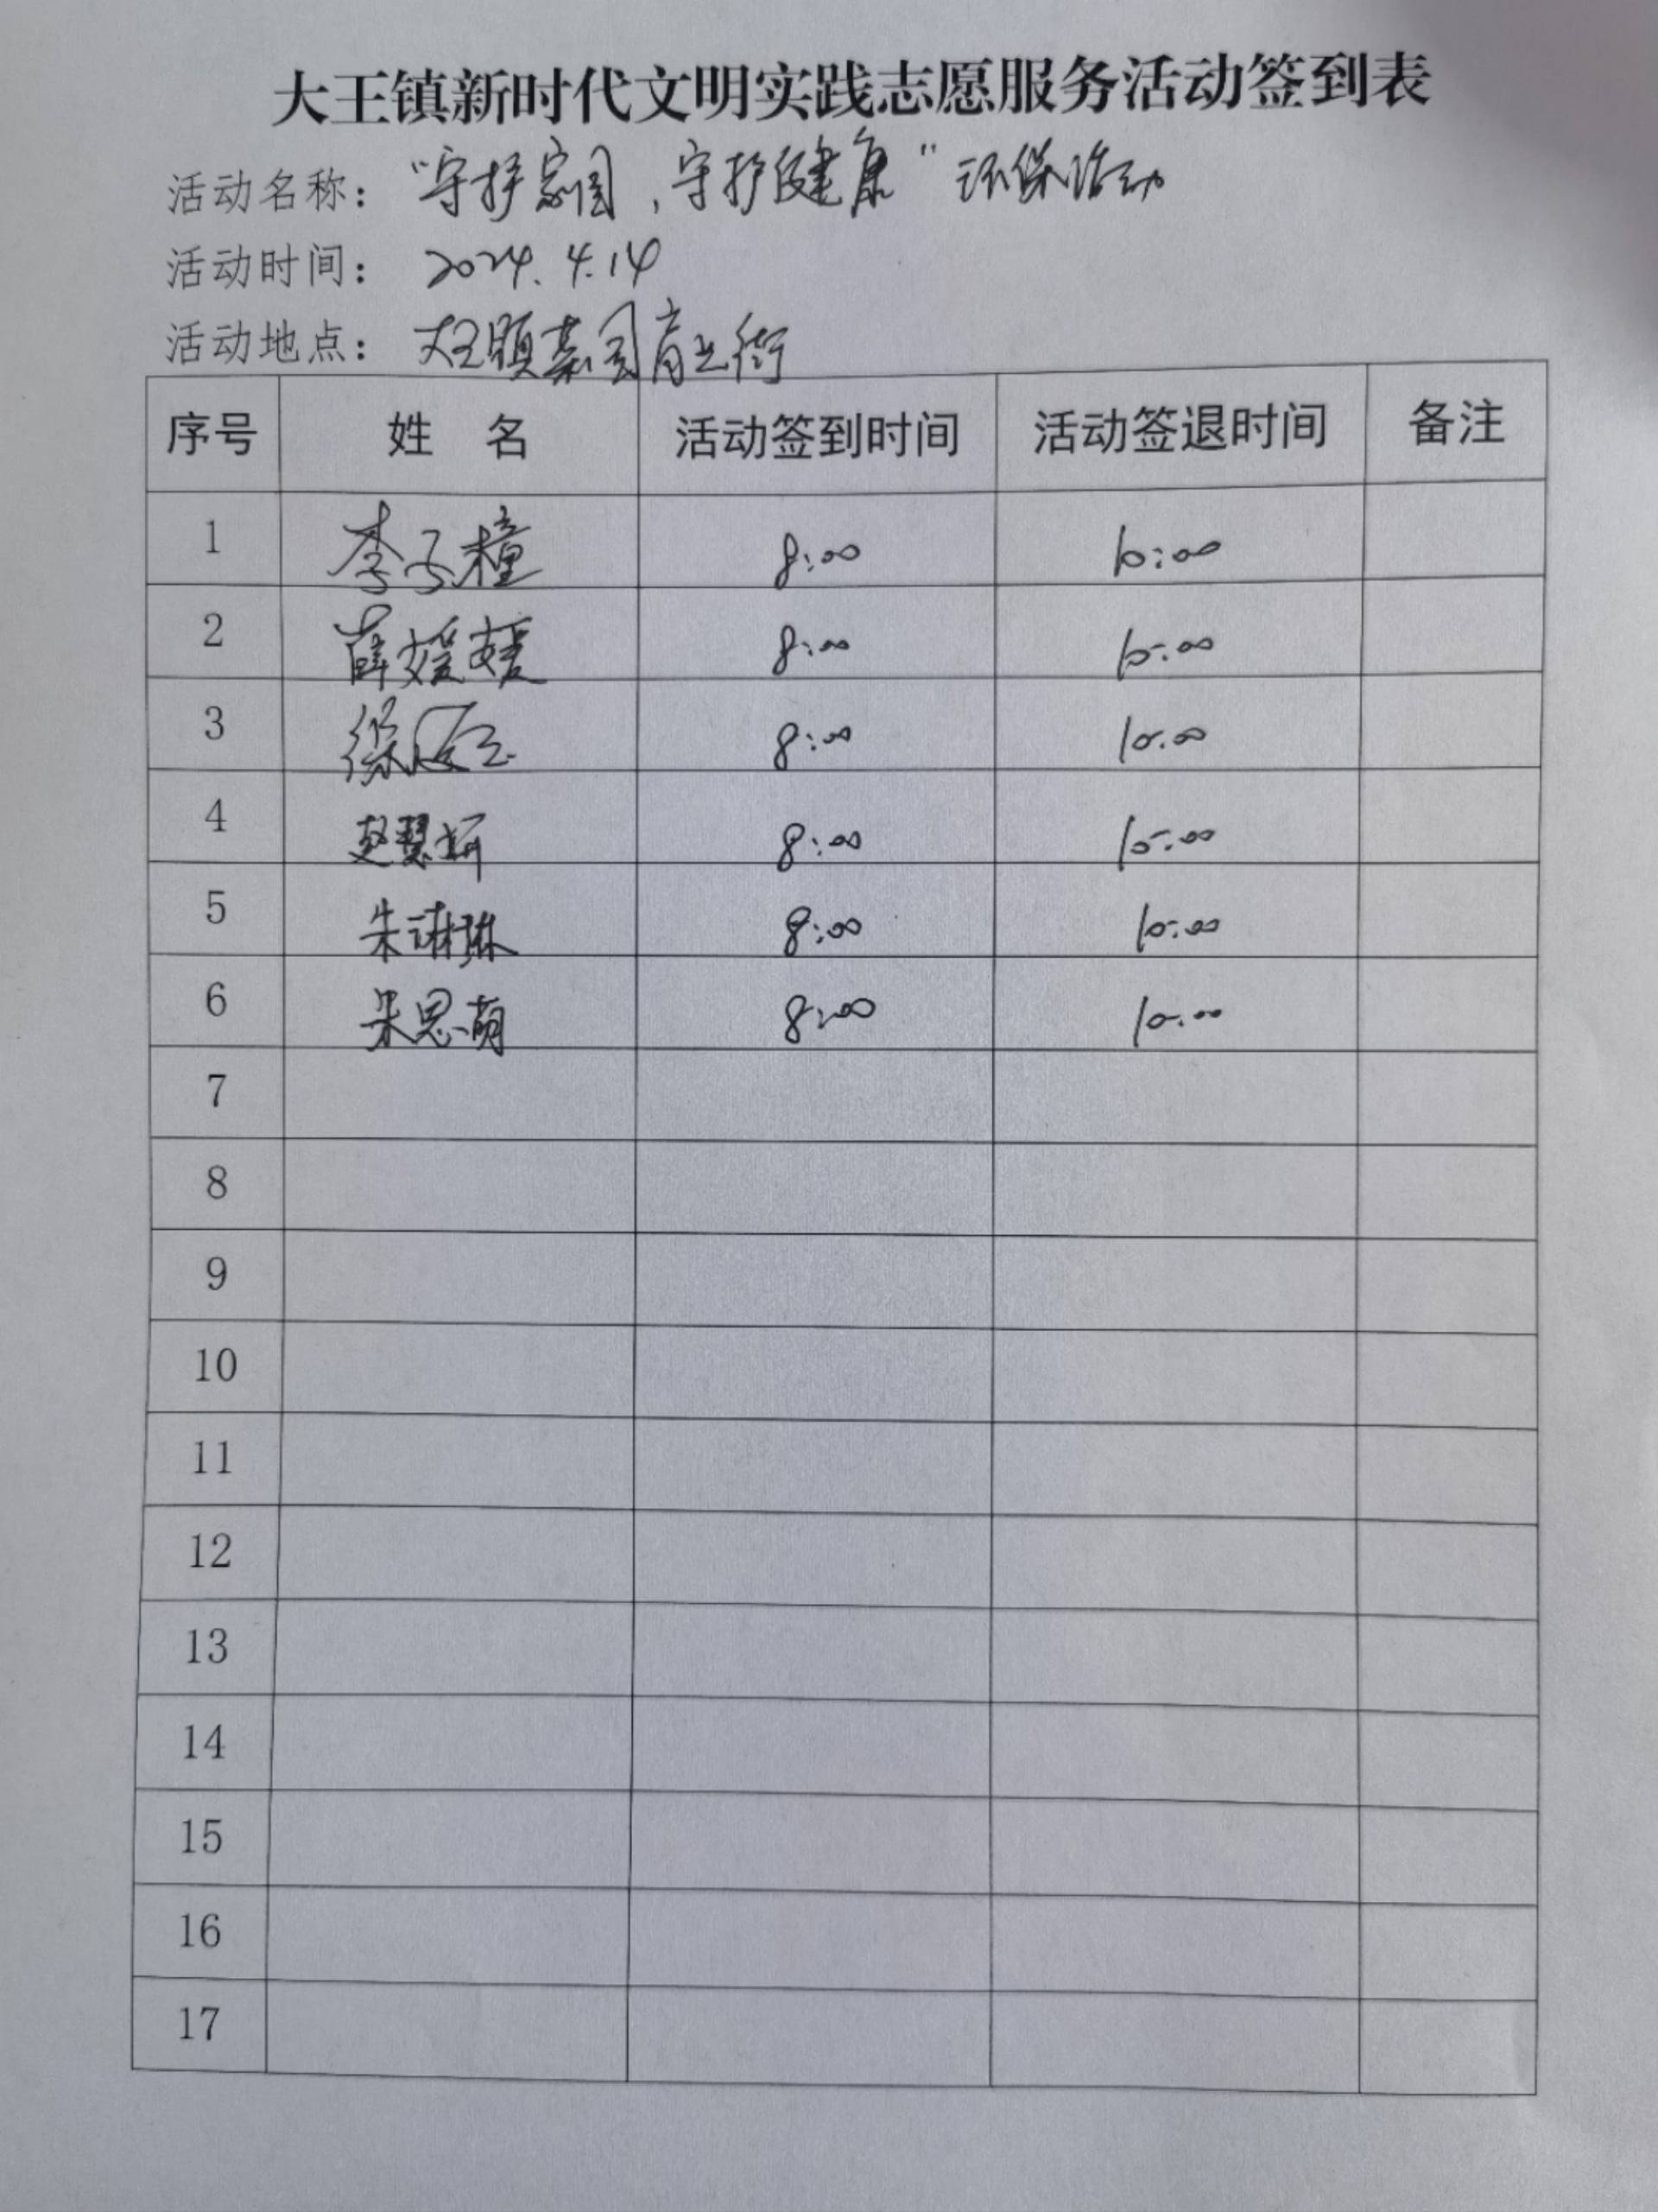 大王镇新时代文明实践志愿服务活动签到表
活动名称： “守护家园，守护健康”环保活动
活动时间： 2024.4.14
活动地点： 大王镇 街
序号 姓 名 活动签到时间 活动签退时间 备注
1 李子橦 8:00 10:00
2 薛媛媛 8:00 10:00
3 徐 8:00 10:00
4 赵慧妍 8:00 10:00
5 朱琳琳 8:00 10:00
6 朱思萌 8:00 10:00
7
8
9
10
11
12
13
14
15
16
17